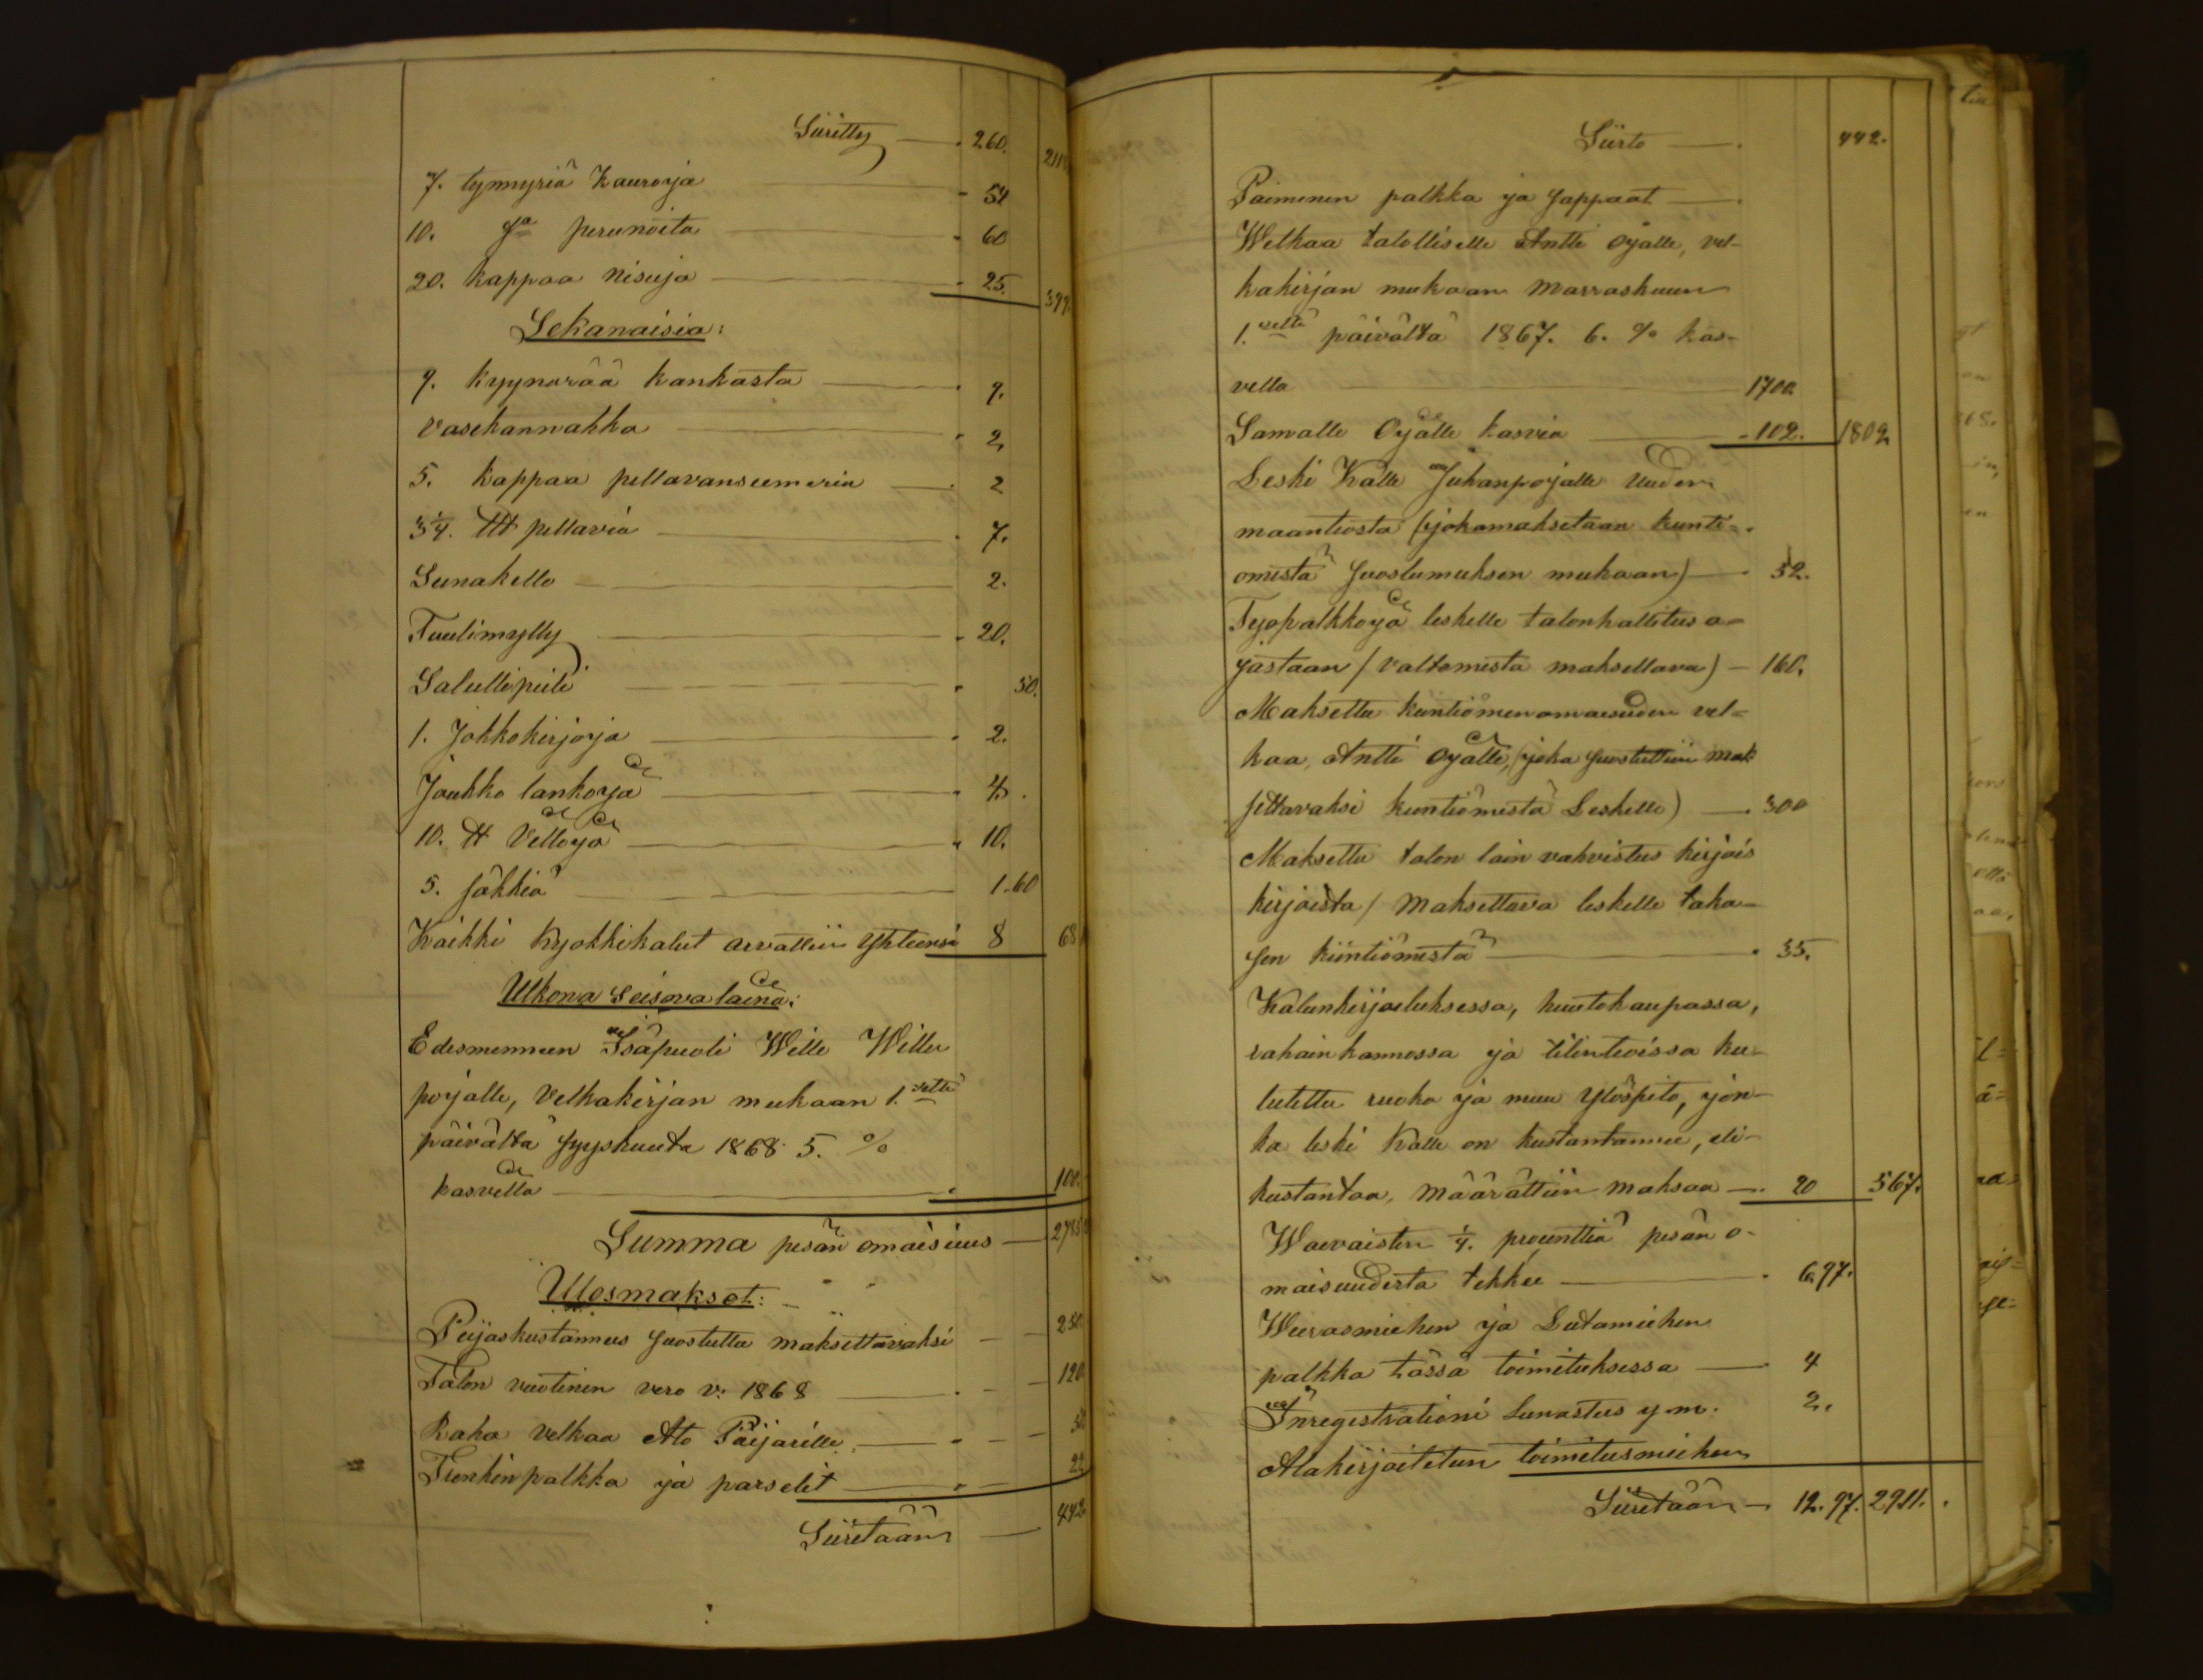 Siiretty — 260.
7. tynnyriä Kauroja — 54
10. Sa perunoita — 60
20. kappaa Nisuja — 25. 399.
Sekanaisia:
9. kyynärää kankasta — 9.
Vasekannahka — 2
5. kappaa pellavansiemeniä — 2
3 1/4. ttt pellavia — 7.
Seinakello — 2.
Tuulimylly — 20.
Salullipiili — 50.
1. Jokkokirjoja — 2.
Joukko lankoja — 4.
10. tt Villoja — 10.
5. säkkiä — 1.60
Kaikki Kyökkikalut arvattiin Yhteensä 8 68
Ulkona Seisova laina:
Edesmenneen Isäpuoli Wille Wille
pojalle, Velkakirjan mukaan 1.seltä
päivältä Syyskuuta 1868. 5. %
kasvolla — 100.
Summa pesän omaisuus —
Ulosmaksot:
Peijaskustannus suostuttu maksettavaksi — 250
Talon vuotinen vero v: 1868 — 120
Raha velkaa Ato Päijärille — 50
Trenkin palkka ja parselit — 22
Siiretään — 442.
Siirto — 442.
Paimenen palkka ja sappaat —
Welkaa talolliselle Antti Ojalle, vel-
kakirjan mukaan Marraskuun
1.seltä päivältä 1867. 6. % kas-
vella — 1700.
Samalle Ojalle kasvia — 102. 1802.
Leski Kalle Juhanpojalle Uuden
maantiosta (joka maksetaan kunti-
omista suostumuksen mukaan) — 52.
Työpalkkoja leskelle talonhallitus a-
jastaan (valtomista maksettava) — 160.
Maksettu kiintiömen omaisuden vel-
kaa, Antti Ojalle, (joka suostuttiin mak
settavaksi kiintiömistä Leskelle) — 300
Maksettu talon lain vahvistus kirjois
kirjoista / Maksettava leskelle taka-
sen kiintiömistä — 35.
Kalunkirjoituksessa, huutokaupassa,
rahain kannossa ja tilintioissa ku-
lutettu ruoka ja muu Ylöspito, jon-
ka leski Kalle on kustantannu, eli-
kustantaa, määrättiin maksaa — 20 567.
Waevaisten 1/4. prosenttiä pesän o-
maisuudesta tekkee — 6,97.
Wierasmiehen ja Lutamiehen
palkka tässä toimituksessa — 4
Inregistrationi Lunastus y.m. 2.
Alakirjoitetun toimitusmiehen
Siiretään — 12.97. 2911.